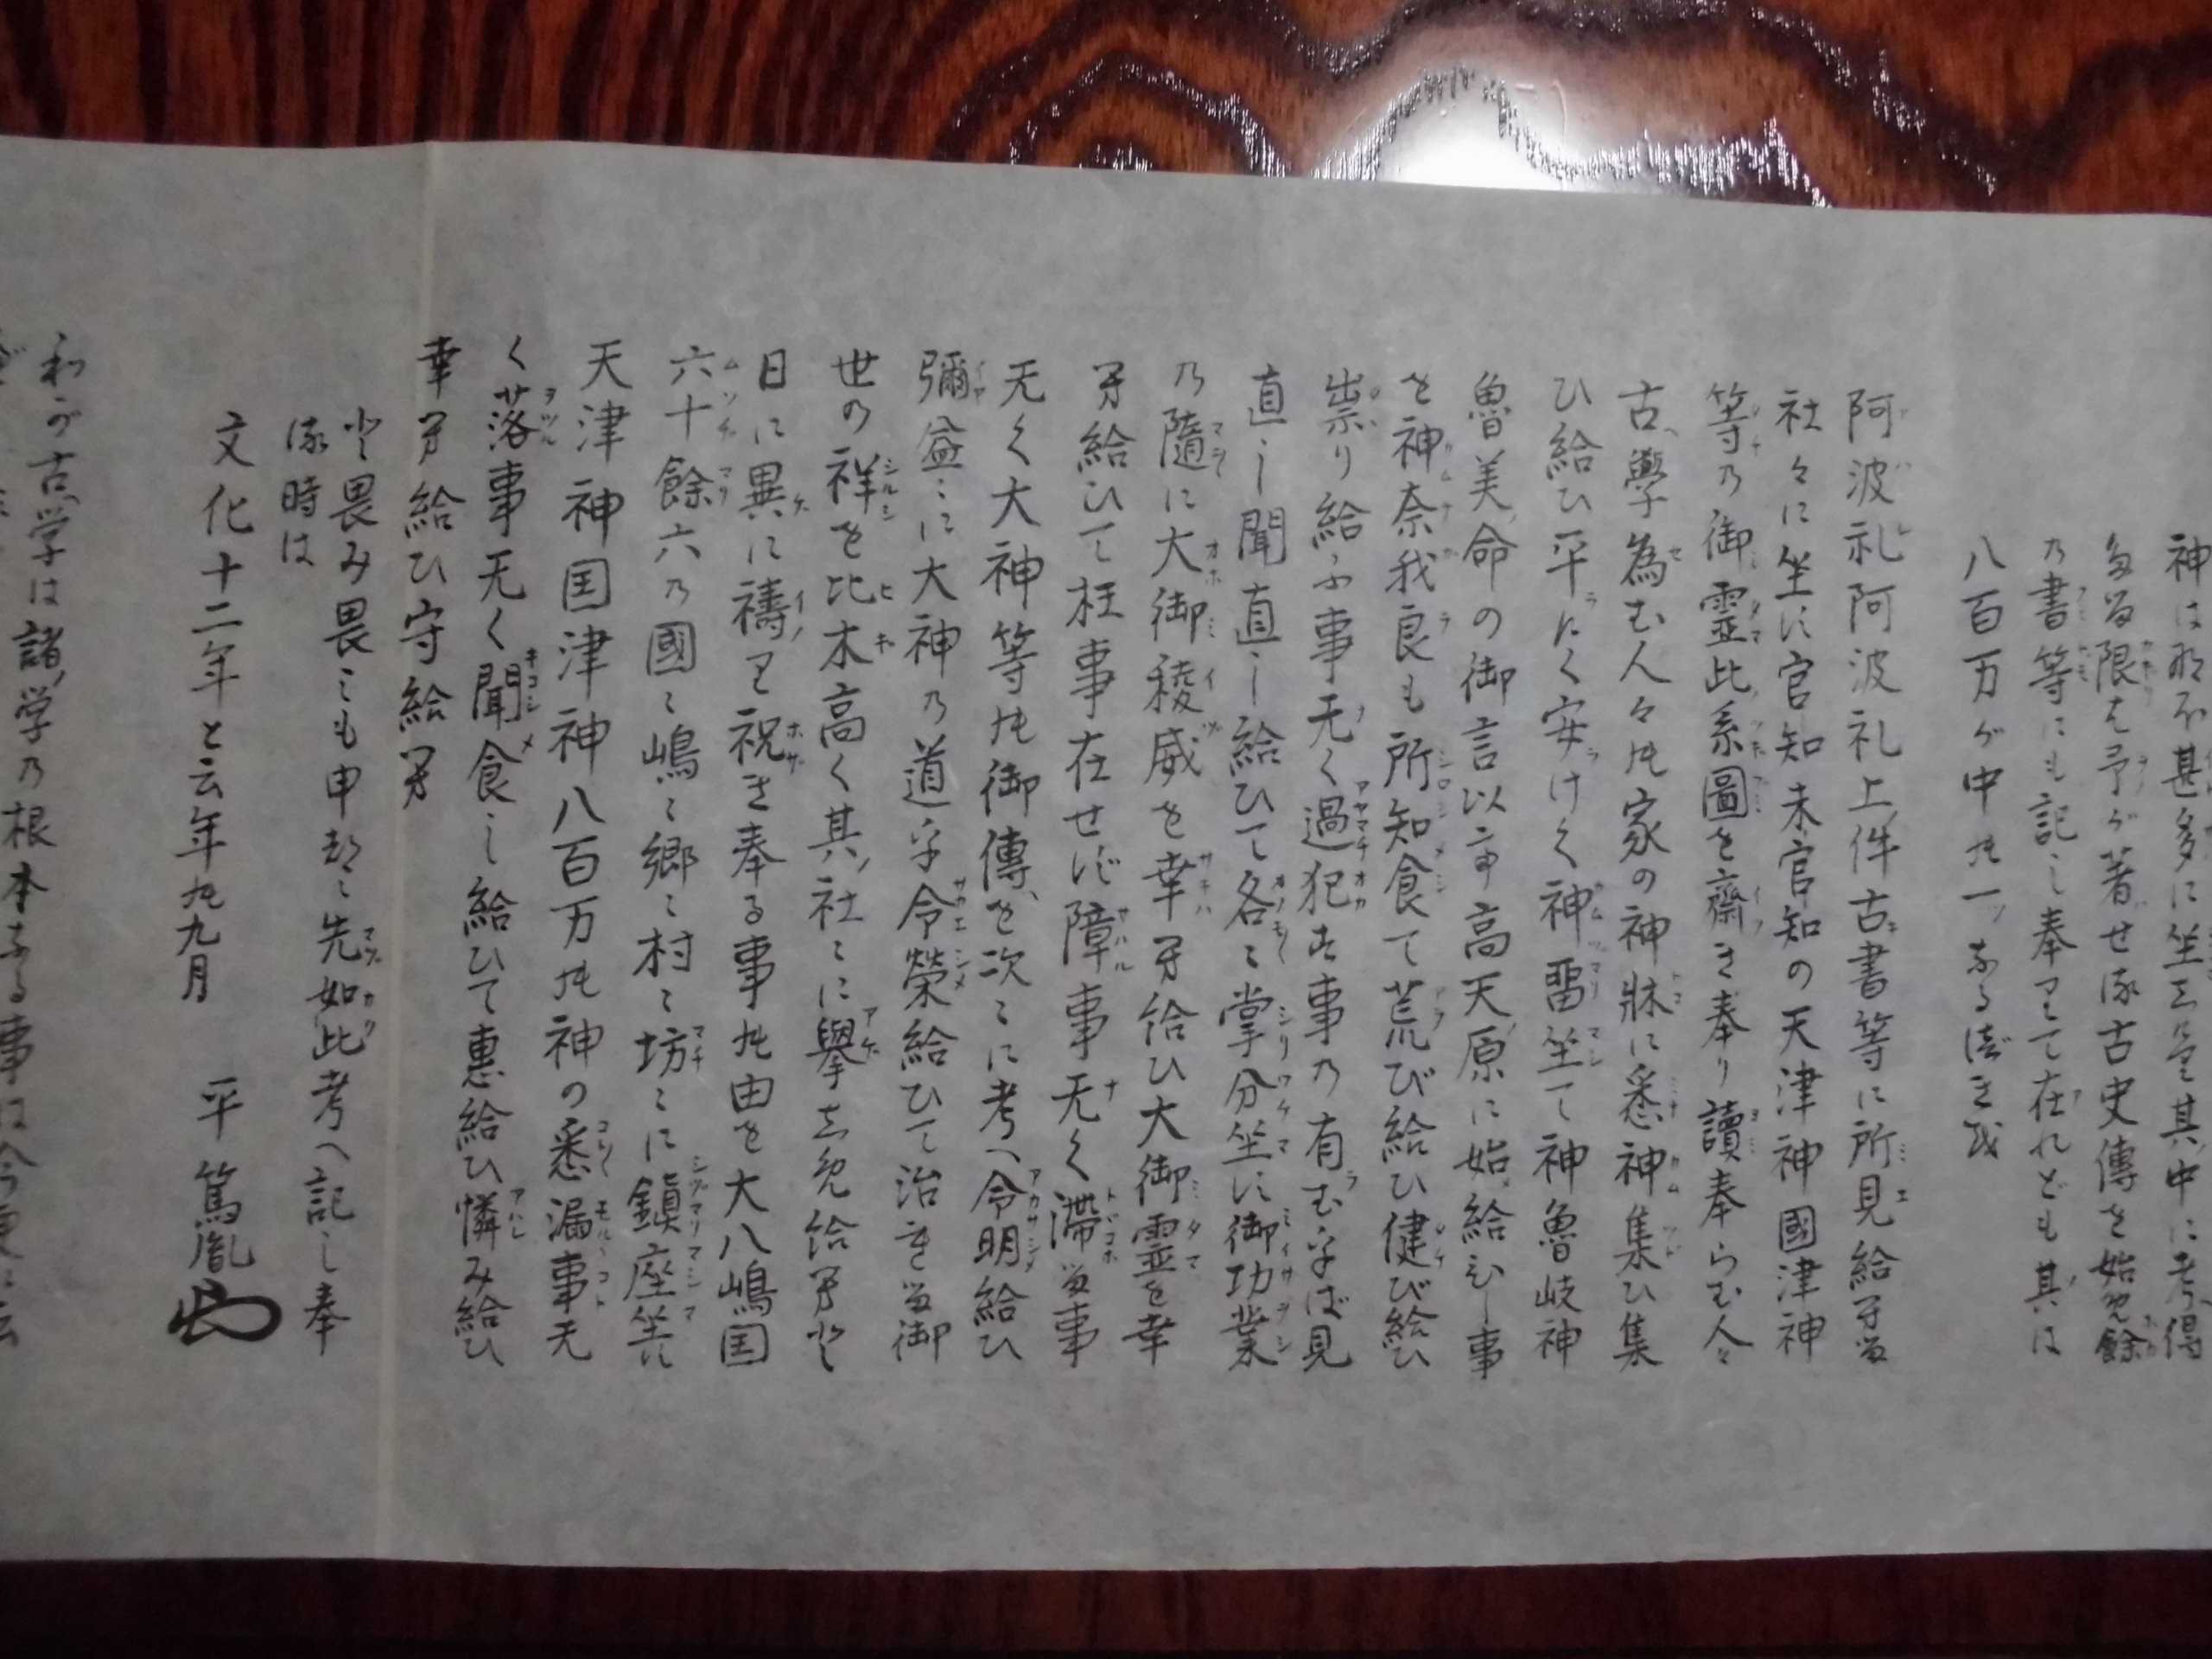 神は甚多に坐其中に考得
限は予が著せる古史傳を始め餘
乃書等にも記し奉りて在れども其は
八百万が中の一つなるべき哉
阿波礼阿波礼上件古書等に所見給
社々に坐に官知未官知の天津神國津神
等乃御霊此系圖を齋き奉り讀奉らむ人々
古學為む人々の家の神牀に悉神集ひ集
ひ給ひ平けく安けく神留坐て神魯岐神
魯美命の御言以高天原に始給ひし事
を神奈我良も所知食て荒び給ひ健び給ひ
祟り給ふ事无く過犯す事乃有むをば見
直し聞直し給ひて各々掌分坐に御功業
乃隨に大御稜威を幸給ひ大御霊を幸
給ひて枉事在せず障事无く滞事
无く大神等の御傳を次々に考へ令明給ひ
彌益々に大神乃道を令榮給ひて治御
世の祥を比木高く其社々に擧給
日に異に禱り祝き奉る事の由を大八嶋国
六十餘六乃國々嶋々郷々村々坊々に鎮座坐
天津神国津神八百万の神の悉漏事无
く落事无く聞食し給ひて惠給ひ憐み給ひ
幸給ひ守給
と畏み畏みも申先如此考へ記し奉
る時は
文化十二年と云年の九月 平篤胤
和が古學は諸學乃根本なる事は今更に云